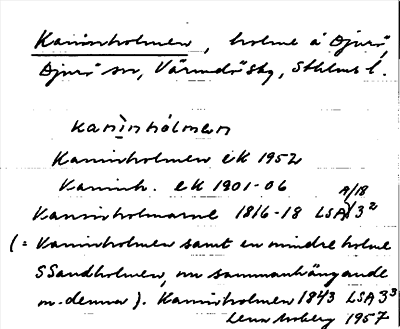 Kaninholmen, holme å Djurö,
Djurö sn, Värmdö skg, Sthlms l.
kanìnhólmen
Kaninholmen ek 1952
Kaninh. ek 1901-06
Kaninholmarne 1816-18 LSA A/18 3²
(= Kaninholmen samt en mindre holme
S Sandholmen, nu sammanhängande
m. denna). Kaninholmen 1843 LSA 3³
Lena Moberg 1957